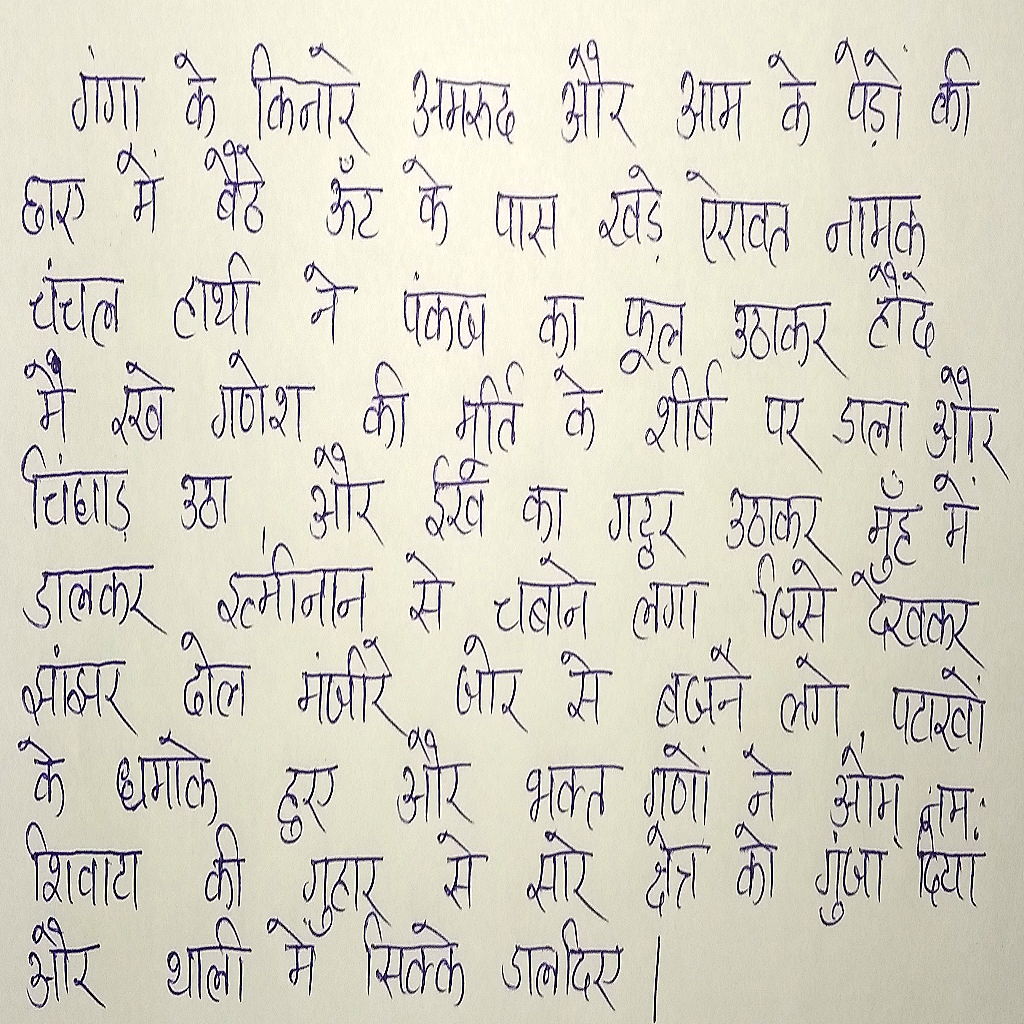 गंगा के किनारे अमरूद और आम के पेड़ों की
छाए में बैठे ऊँट के पास खड़े ऐरावत नामक
चंचल हाथी ने पंकज का फूल उठाकर हौदे
में रखे गणेश की मूर्ति के शीर्ष पर डाला और
चिंघाड़ उठा, और ईख का गट्ठर उठाकर मुँह में
डालकर इत्मीनान से चबाने लगा जिसे देखकर
झांझर ढोल मंजीरे जोर से बजने लगे, पटाखों
के धमाके हुए और भक्त गणों ने ओम् नमः
शिवाय की गुहार से सारे क्षेत्र को गुंजा दिया
और थाली में सिक्के डालदिए |